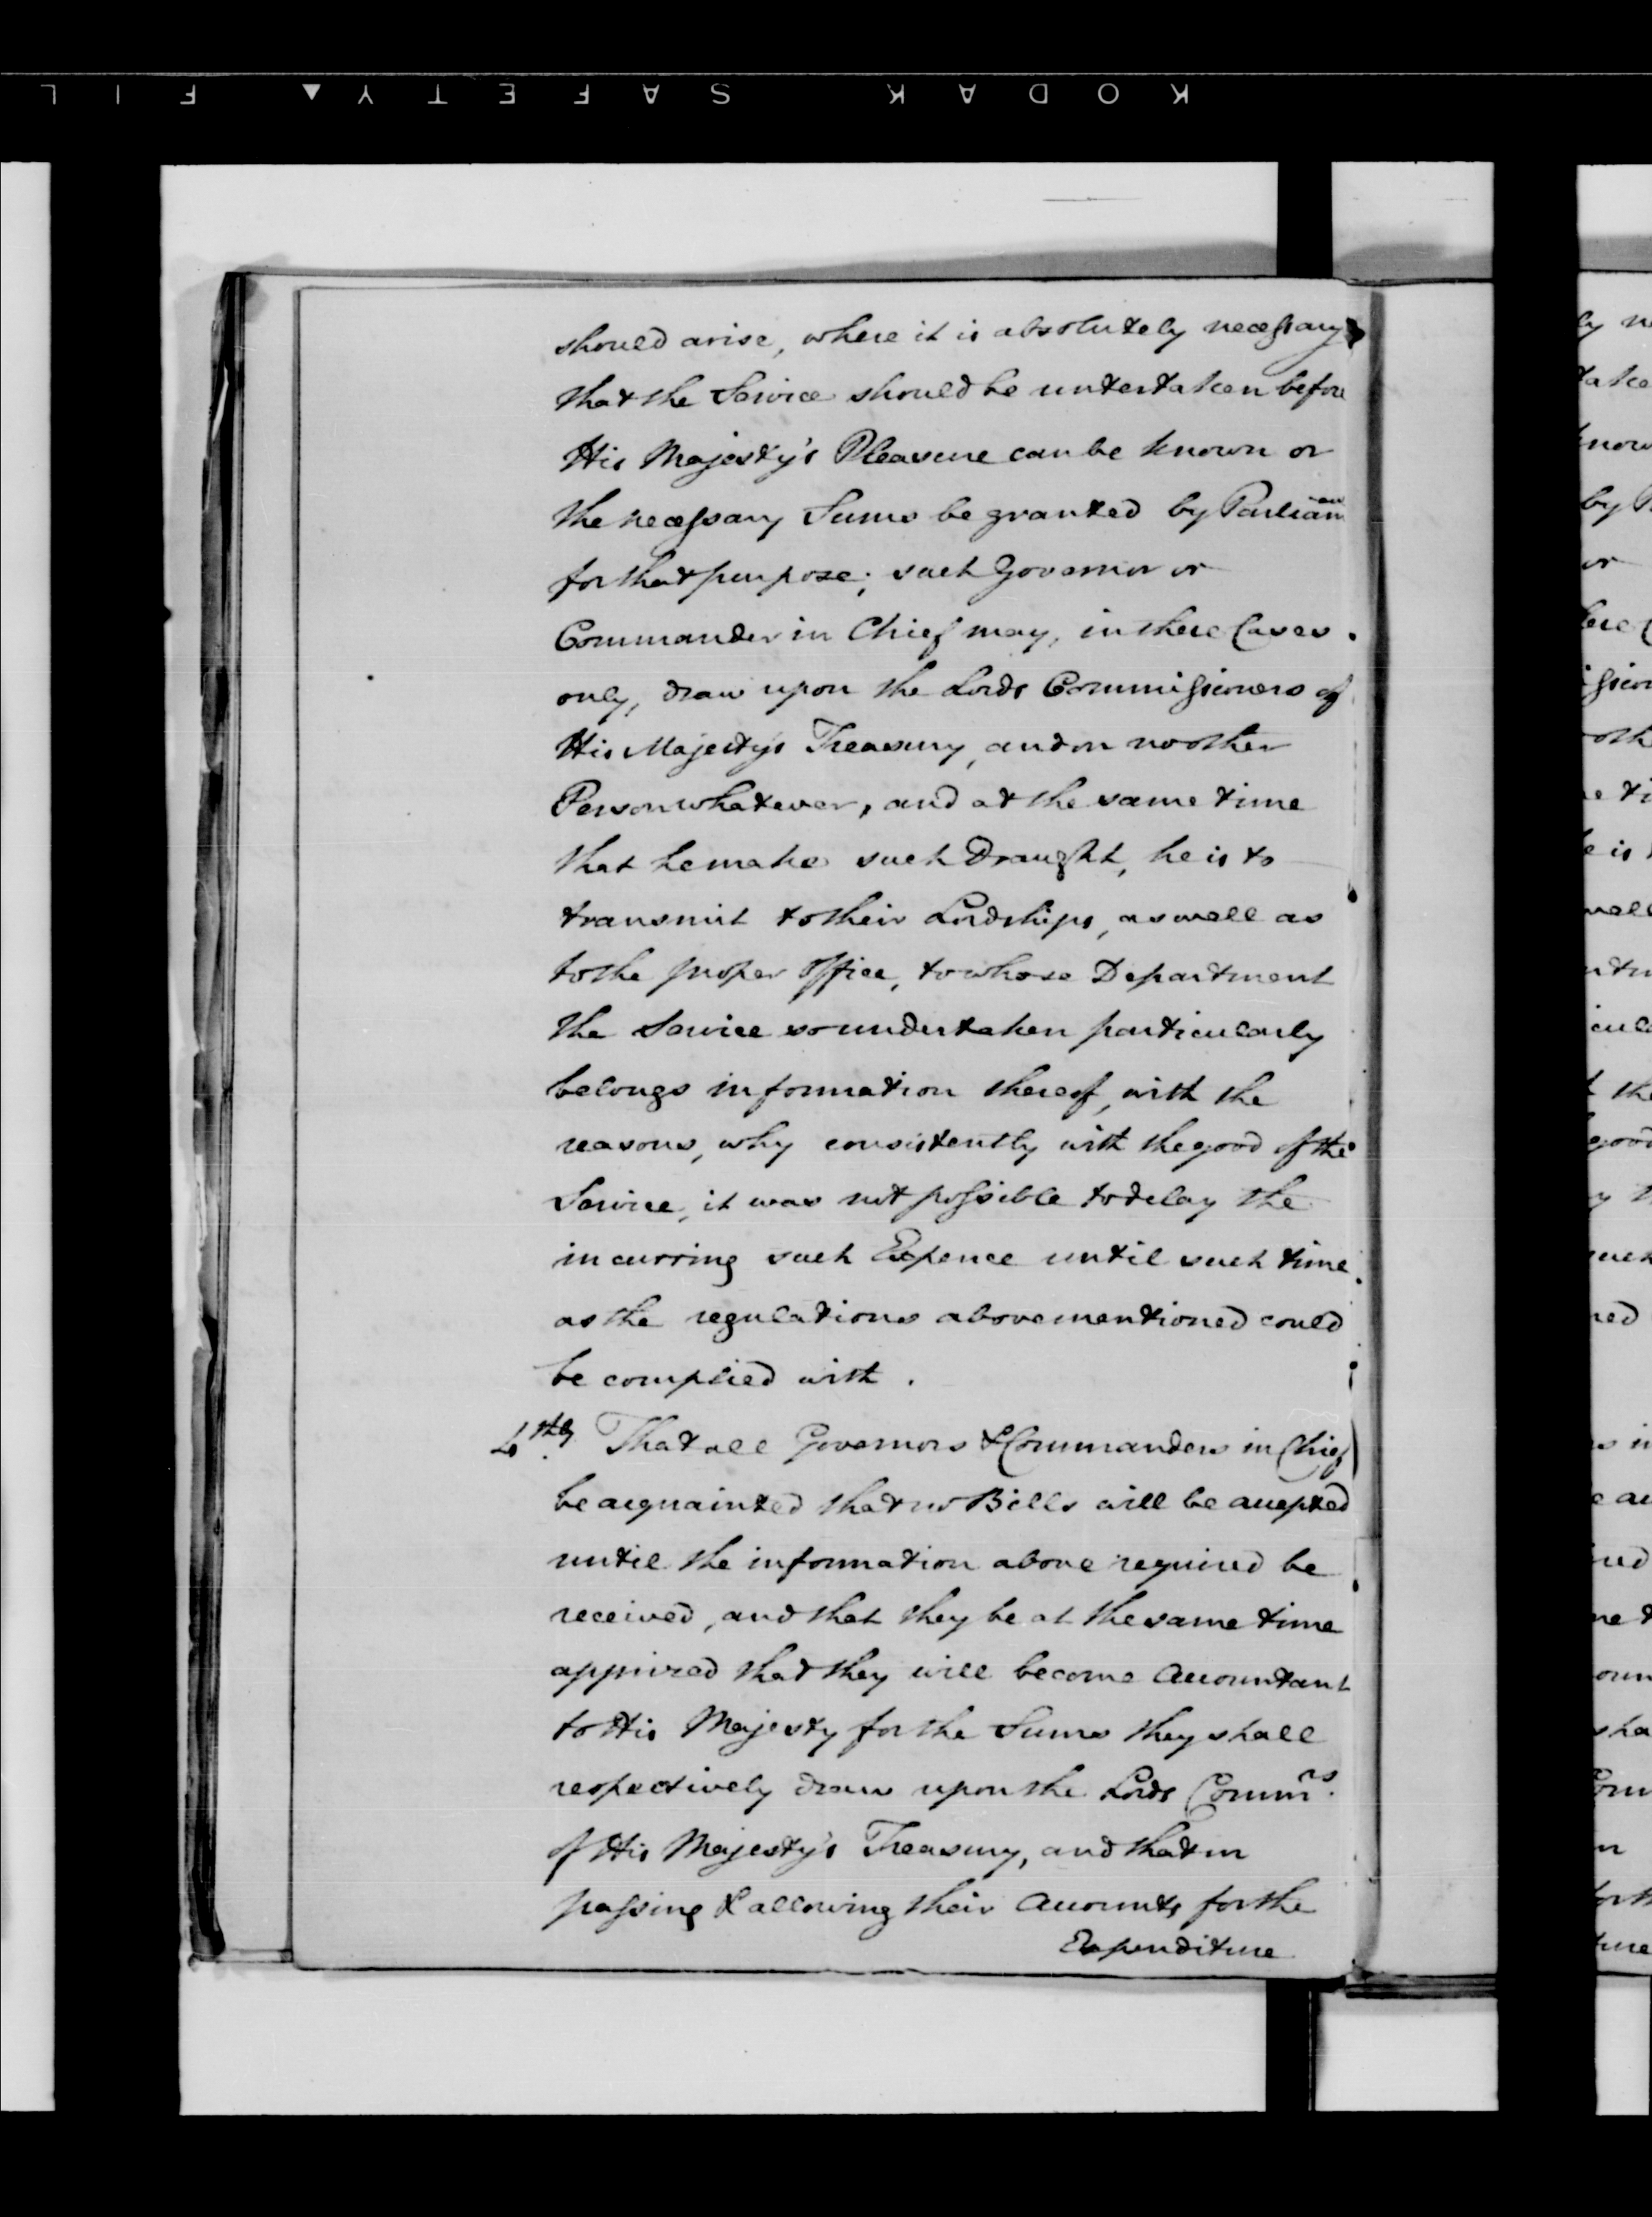 KODAK SAFETY FIL
should arise, where it is absolutely necessary
that the Service should be undertaken before
His Majesty's Pleasure can be known or
the necessary Sums be granted by
for that purpose; such Governor or
Commander in Chief may, in these Cases
only, draw upon the Lords Commissioners of
His Majesty's Treasury, and on no other
Person whatever, and at the same time
that he makes such Draught, he is to
transmit to their Lordships, as well as
to the proper Office, to whose Department
the Service so undertaken particularly
belongs information thereof, with the
reasons, why consistently with the good of the
Service, it was not possible to delay the
incurring such Expence until such time
as the regulations abovementioned could
be complied with.
4thly That all Governors & Commanders in Chief
be acquainted that no Bills will be accepted
until the information above required be
received, and that they be at the same time
apprized that they will become Accountant
to His Majesty for the Sums they shall
respectively draw upon the Lords Commrs.
of His Majesty's Treasury, and that in
passing & allowing their Accounts for the
Expenditure